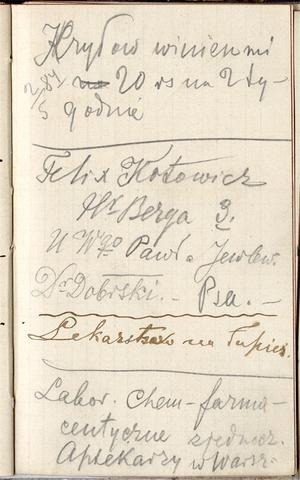 Kryłow winien mi
2/84 20 rs na 2 ty-
5 godnie
Felix Kotowicz
Hr Berga 3.
U Wgo Pawła Jewlew.
Dr Dobrski. - Psa. -
Lekarstwo na łupież.
Labor. chem-farma-
ceutyczne zjednocz.
Aptekarzy w Warsz.